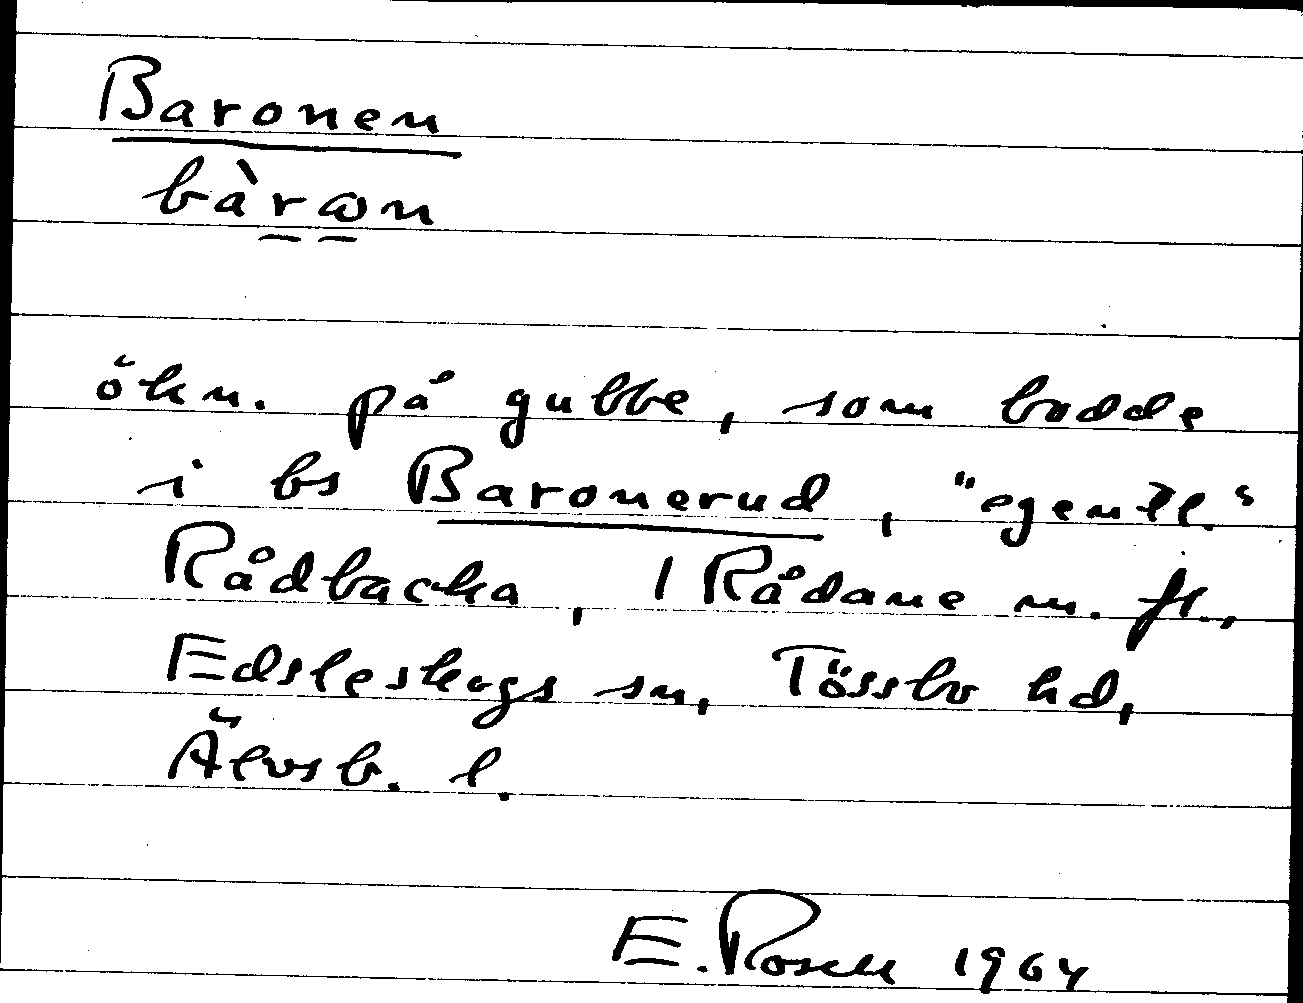 Baronen
bàrωn
ökn. på gubbe, som bodde
i bs Baronerud, "egentl."
Rådbacka, 1 Rådane m. fl.,
Edsleskogs sn, Tössbo hd,
Älvsb. l.
E. Rosell 1964